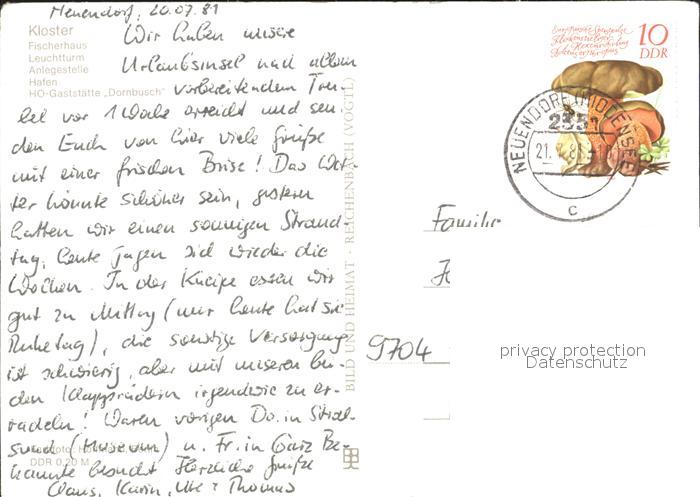 Neuendorf, 20.07.81
Kloster
Fischerhaus
Leuchtturm
Anlegestelle
Hafen
HO-Gaststätte „Dornbusch"
Wir haben unsere
Urlaubsinsel nach allem
vorbereitendem Tru-
bel vor 1 Woche erreicht und sen-
den Euch von hier viele Grüße
mit einer frischen Brise! Das Wet-
ter könnte schöner sein, gestern
hatten wir einen sonnigen Strand-
tag, heute jagen sich wieder die
Wolken. In der Kneipe essen wir
gut zu Mittag (nur heute hat sie
Ruhetag), die sonstige Versorgung
ist schwierig, aber mit unseren bei-
den Klapprädern irgendwie zu er-
radeln! Waren vorigen Do. in Stral-
sund (Museum) u. Fr. in Garz Be-
kannte besucht Herzliche Grüße
Claus, Karin, Ute + Thomas
DDR 0,20 M
BILD UND HEIMAT · REICHENBACH (VOGTL)
10
DDR
NEUENDORF (HIDDENSEE)
2331
c
Familie
9704
privacy protection
Datenschutz